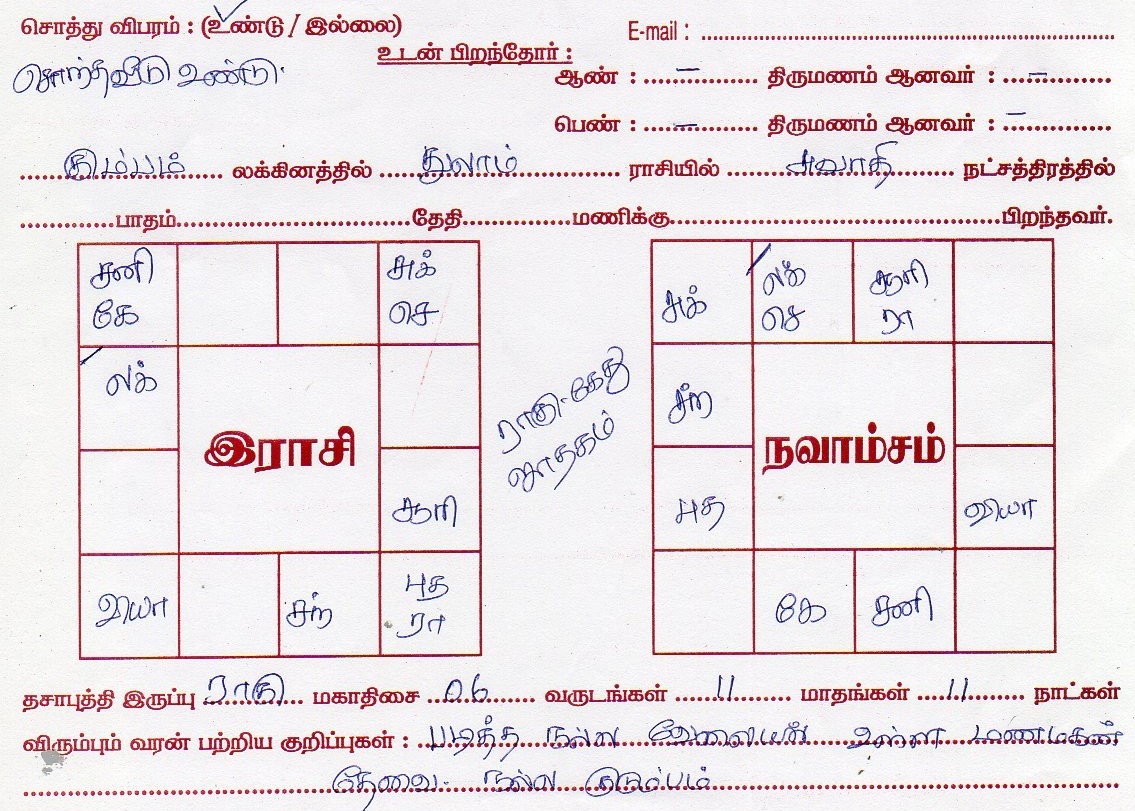 சொத்து விபரம் : (உண்டு / இல்லை)
E-mail : ........................
உடன் பிறந்தோர் :
சொந்தவீடு உண்டு.
ஆண் : ...–... திருமணம் ஆனவர் : ...–...
பெண் : ...–... திருமணம் ஆனவர் : ...–...
கும்பம் லக்கினத்தில் துலாம் ராசியில் சுவாதி நட்சத்திரத்தில்
............பாதம்............தேதி............மணிக்கு............பிறந்தவர்.
சனி கே
சுக் செ
லக்
இராசி
சூரி
வியா
சந்
புத ரா
ராகு-கேது ஜாதகம்
சுக்
லக் செ
சூரி ரா
சந்
நவாம்சம்
புத
வியா
கே
சனி
தசாபுத்தி இருப்பு ராகு மகாதிசை 06 வருடங்கள் 11 மாதங்கள் 11 நாட்கள்
விரும்பும் வரன் பற்றிய குறிப்புகள் : படித்த நல்ல வேலையில் உள்ள மணமகன்
தேவை. நல்ல குடும்பம்